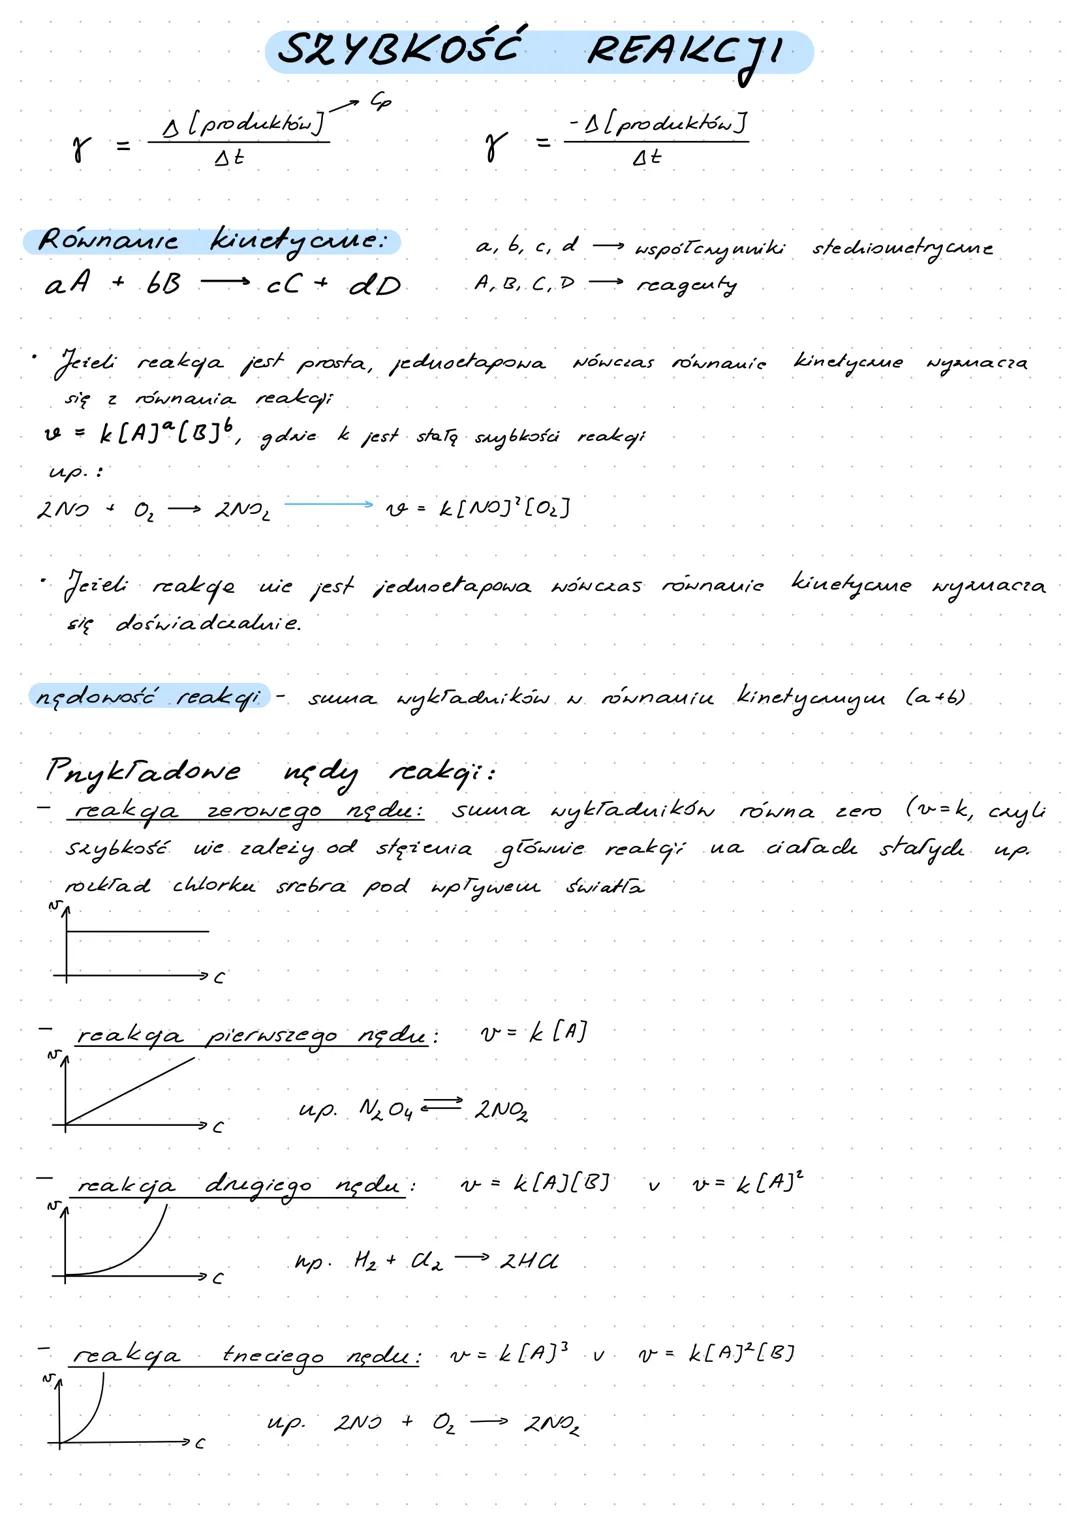 SZYBKOŚĆ REAKCJI
γ = Δ[produktów] / Δt → Cp
γ = -Δ[produktów] / Δt
Równanie kinetyczne:
a, b, c, d → współczynniki stechiometryczne
aA + bB → cC + dD
A, B, C, D → reagenty
• Jeżeli reakcja jest prosta, jednoetapowa wówczas równanie kinetyczne wyznacza
się z równania reakcji
v = k[A]ᵃ[B]ᵇ, gdzie k jest stałą szybkości reakcji
np.:
2NO + O₂ → 2NO₂ → v = k[NO]²[O₂]
• Jeżeli reakcje nie jest jednoetapowa wówczas równanie kinetyczne wyznacza
się doświadczalnie.
rzędowość reakcji - suma wykładników w równaniu kinetycznym (a+b)
Przykładowe rzędy reakcji:
- reakcja zerowego rzędu: suma wykładników równa zero (v=k, czyli
szybkość nie zależy od stężenia głównie reakcji na ciałach stałych np.
rozkład chlorku srebra pod wpływem światła
v
c
- reakcja pierwszego rzędu: v = k[A]
v
np. N₂O₄ ⇄ 2NO₂
c
- reakcja drugiego rzędu: v = k[A][B] ∨ v = k[A]²
v
np. H₂ + Cl₂ → 2HCl
c
- reakcja trzeciego rzędu: v = k[A]³ ∨ v = k[A]²[B]
v
np. 2NO + O₂ → 2NO₂
c